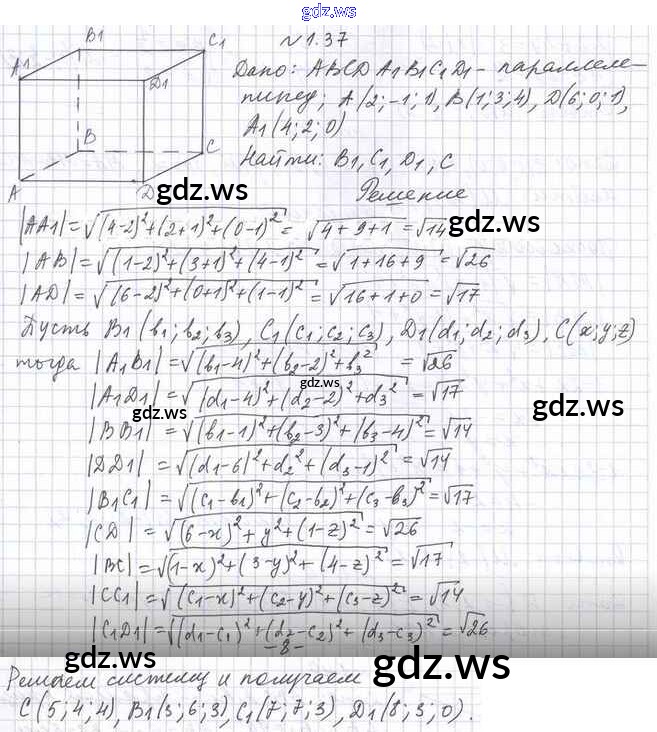 gdz.ws
B1
C1
A1
D1
B
C
A
D
N 1.37
Дано: ABCD A1B1C1D1 - параллеле-
пипед; A(2;-1;1), B(1;3;4), D(6;0;1),
A1(4;2;0)
Найти: B1, C1, D1, C
Решение
gdz.ws
|AA1|=√((4-2)²+(2+1)²+(0-1)²)= √(4+9+1)=√14
gdz.ws
|AB|=√((1-2)²+(3+1)²+(4-1)²)=√(1+16+9)=√26
|AD|=√((6-2)²+(0+1)²+(1-1)²)=√(16+1+0)=√17
Пусть B1(b1;b2;b3), C1(c1;c2;c3), D1(d1;d2;d3), C(x;y;z)
тогда |A1B1|=√((b1-4)²+(b2-2)²+b3²) =√26
gdz.ws
|A1D1|=√((d1-4)²+(d2-2)²+d3²)=√17
gdz.ws
gdz.ws
|BB1|=√((b1-1)²+(b2-3)²+(b3-4)²)=√14
|DD1|=√((d1-6)²+d2²+(d3-1)²)=√14
|B1C1|=√((c1-b1)²+(c2-b2)²+(c3-b3)²)=√17
|CD|=√((6-x)²+y²+(1-z)²)=√26
|BC|=√((1-x)²+(3-y)²+(4-z)²)=√17
|CC1|=√((c1-x)²+(c2-y)²+(c3-z)²)=√14
|C1D1|=√((d1-c1)²+(d2-c2)²+(d3-c3)²)=√26
-8-
gdz.ws
gdz.ws
Решаем систему и получаем
C(5;4;4), B1(3;6;3), C1(7;7;3), D1(8;3;0).
gdz.ws